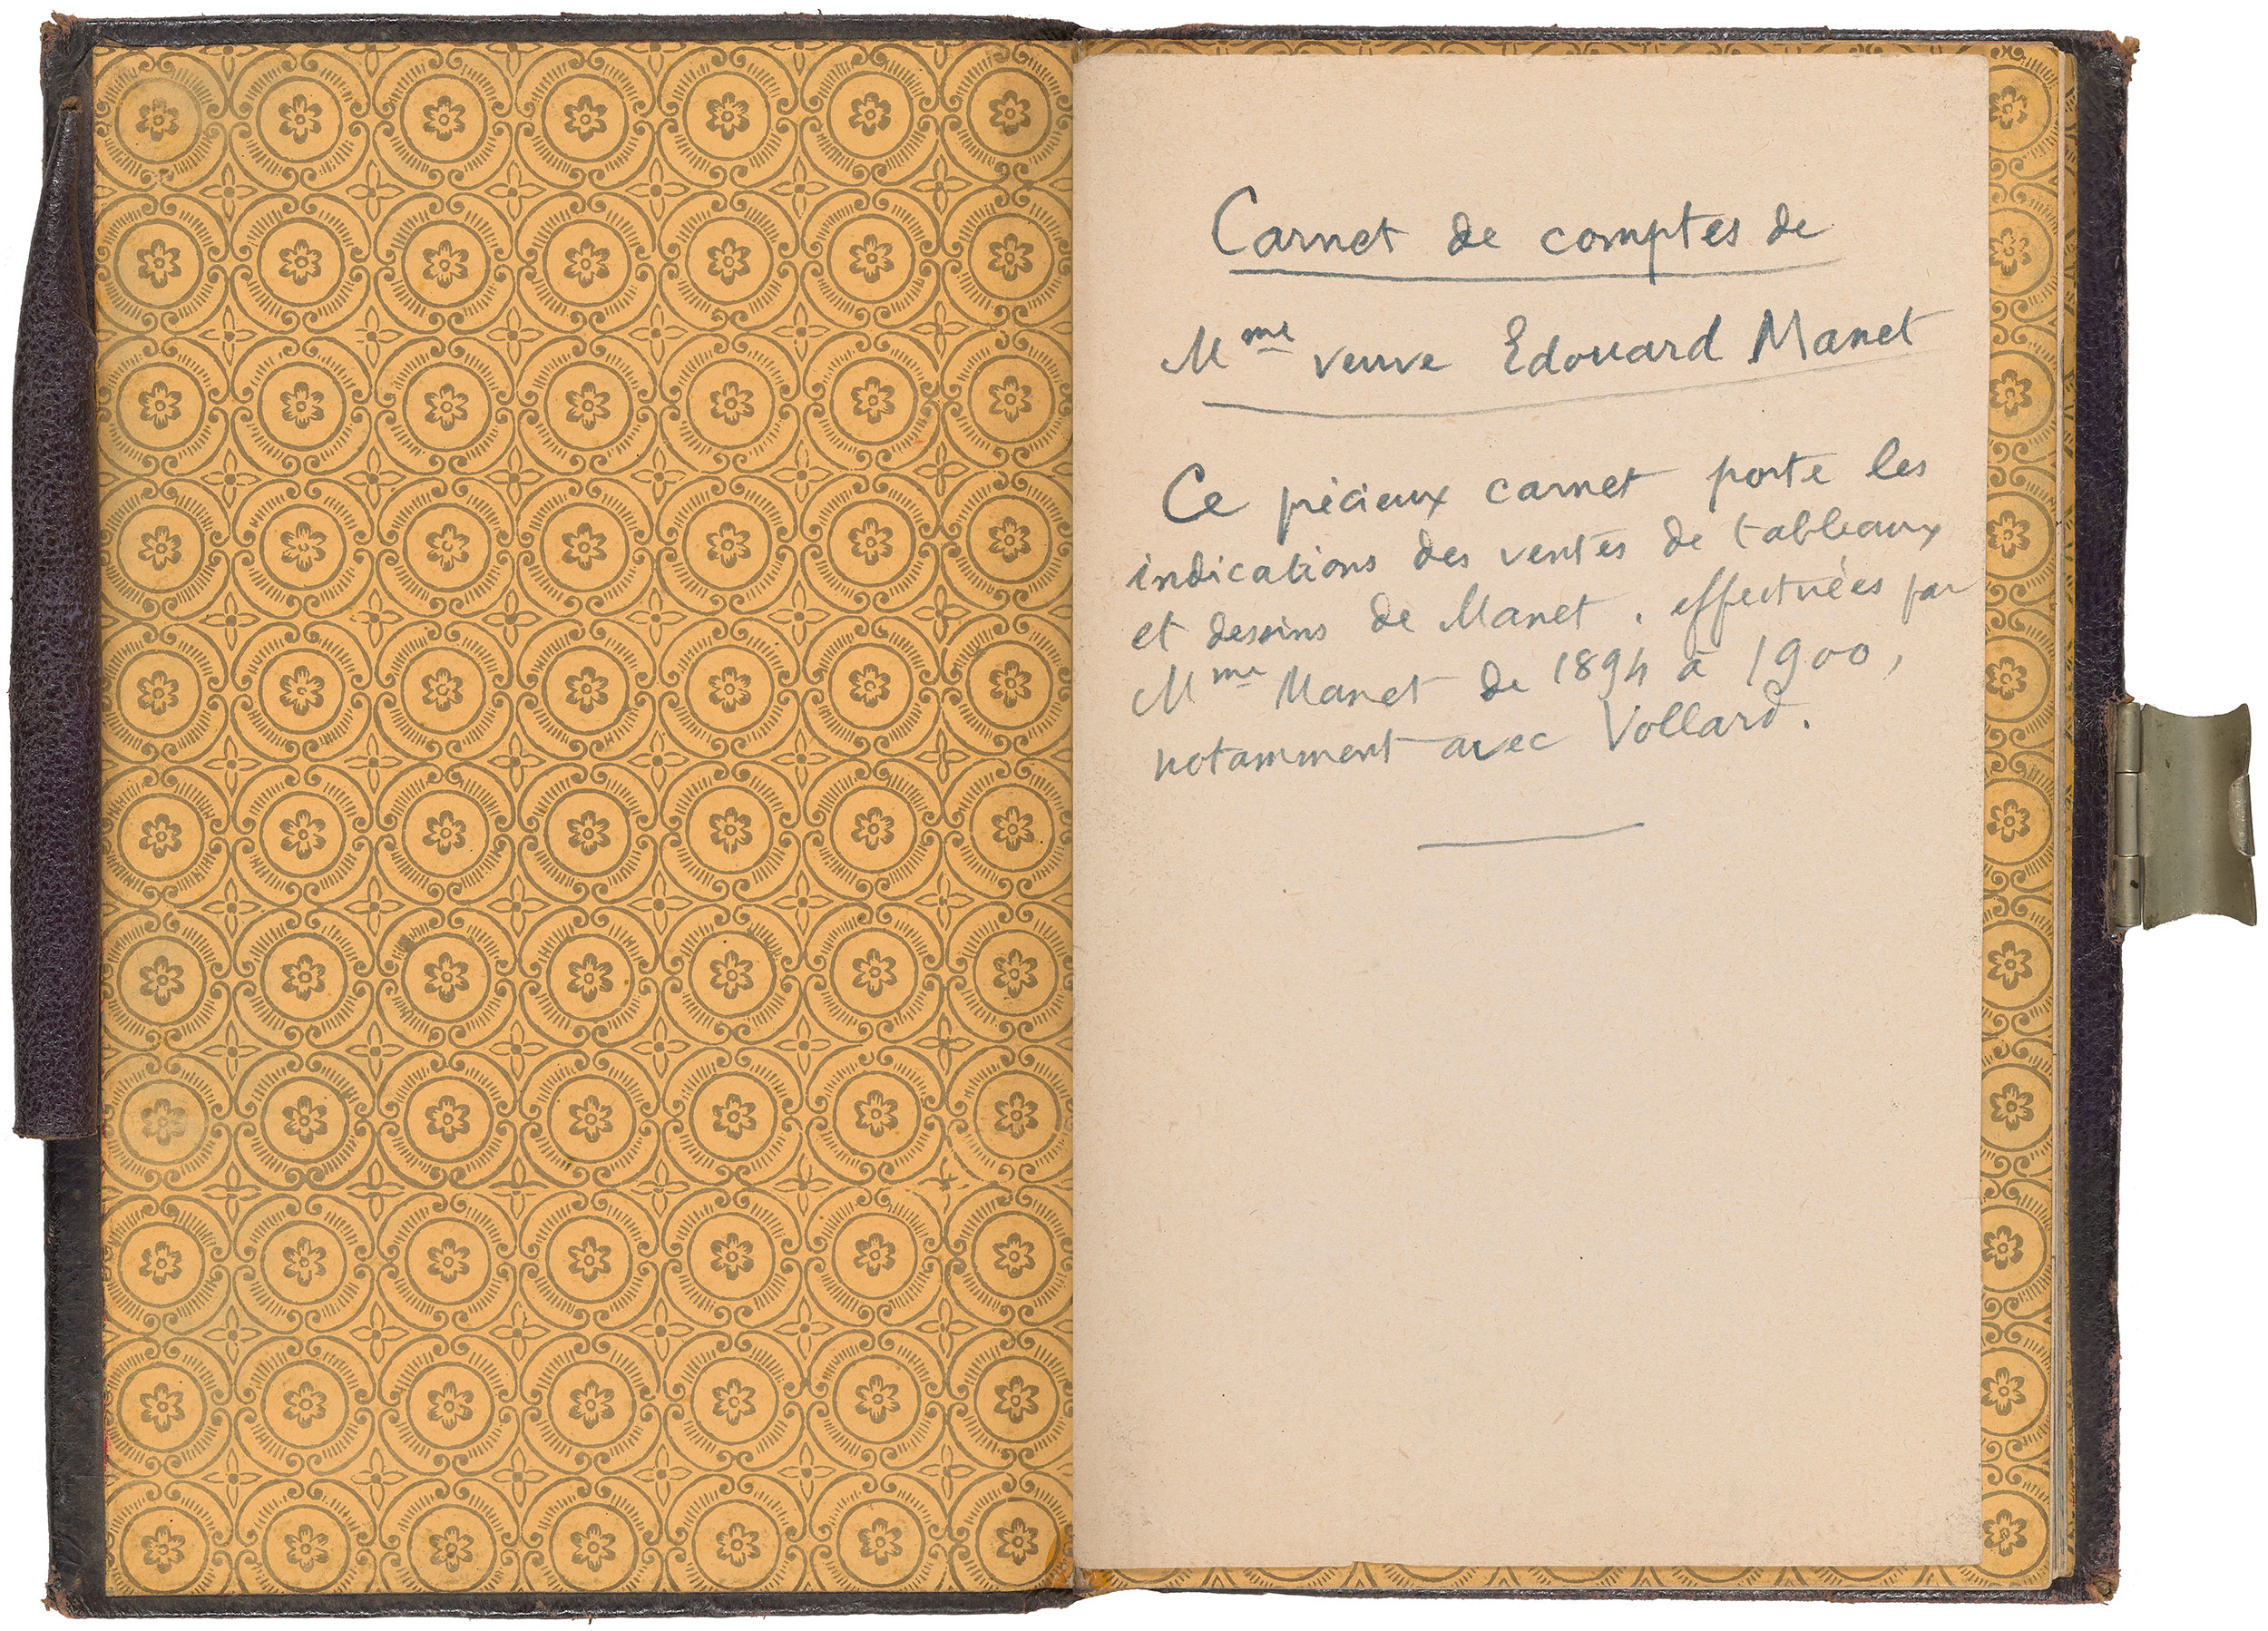 Carnet de comptes de
Mme veuve Edouard Manet
Ce précieux carnet porte les
indications des ventes de tableaux
et dessins de Manet, effectuées par
Mme Manet de 1894 à 1900,
notamment avec Vollard.